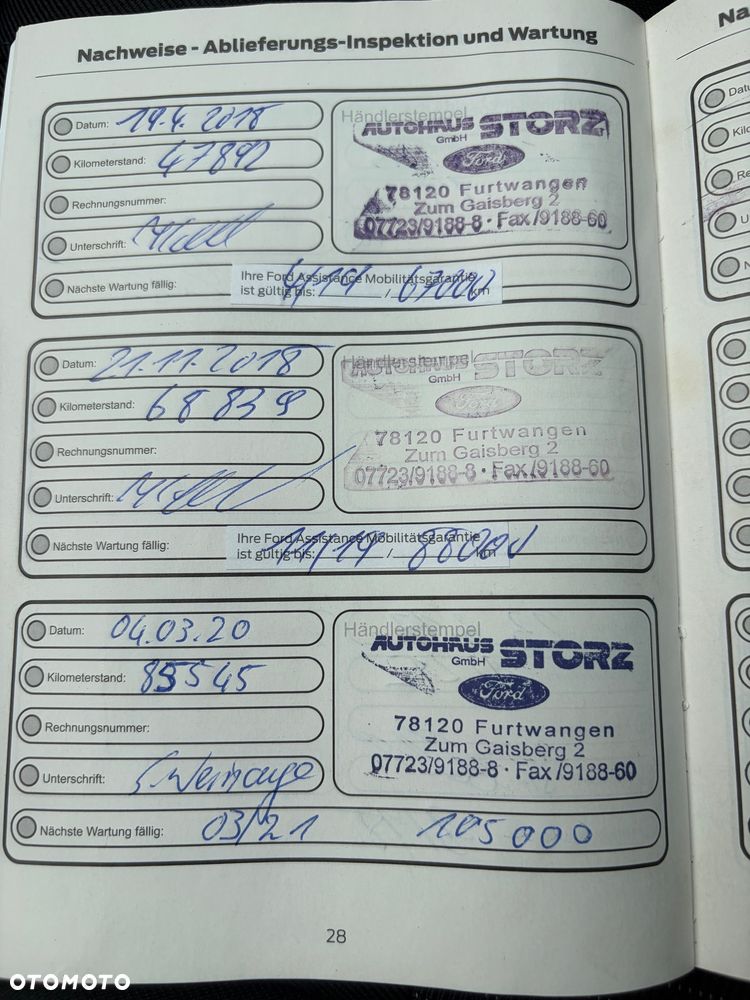 Nachweise - Ablieferungs-Inspektion und Wartung
Na
Datum: 19.4. 2018
Kilometerstand: 47892
Rechnungsnummer:
Unterschrift:
Nächste Wartung fällig:
Ihre Ford Assistance Mobilitätsgarantie
ist gültig bis: 4/19 / 67000 km
Händlerstempel
AUTOHAUS STORZ
GmbH
Ford
78120 Furtwangen
Zum Gaisberg 2
07723/9188-8 · Fax/9188-60
Datum: 21.11.2018
Kilometerstand: 68839
Rechnungsnummer:
Unterschrift:
Nächste Wartung fällig:
Ihre Ford Assistance Mobilitätsgarantie
ist gültig bis: 11/19 / km
Händlerstempel
AUTOHAUS STORZ
GmbH
Ford
78120 Furtwangen
Zum Gaisberg 2
07723/9188-8 · Fax/9188-60
Datum: 04.03.20
Kilometerstand: 85545
Rechnungsnummer:
Unterschrift:
Nächste Wartung fällig: 03/21 105000
Händlerstempel
AUTOHAUS STORZ
GmbH
Ford
78120 Furtwangen
Zum Gaisberg 2
07723/9188-8 · Fax/9188-60
28
OTOMOTO